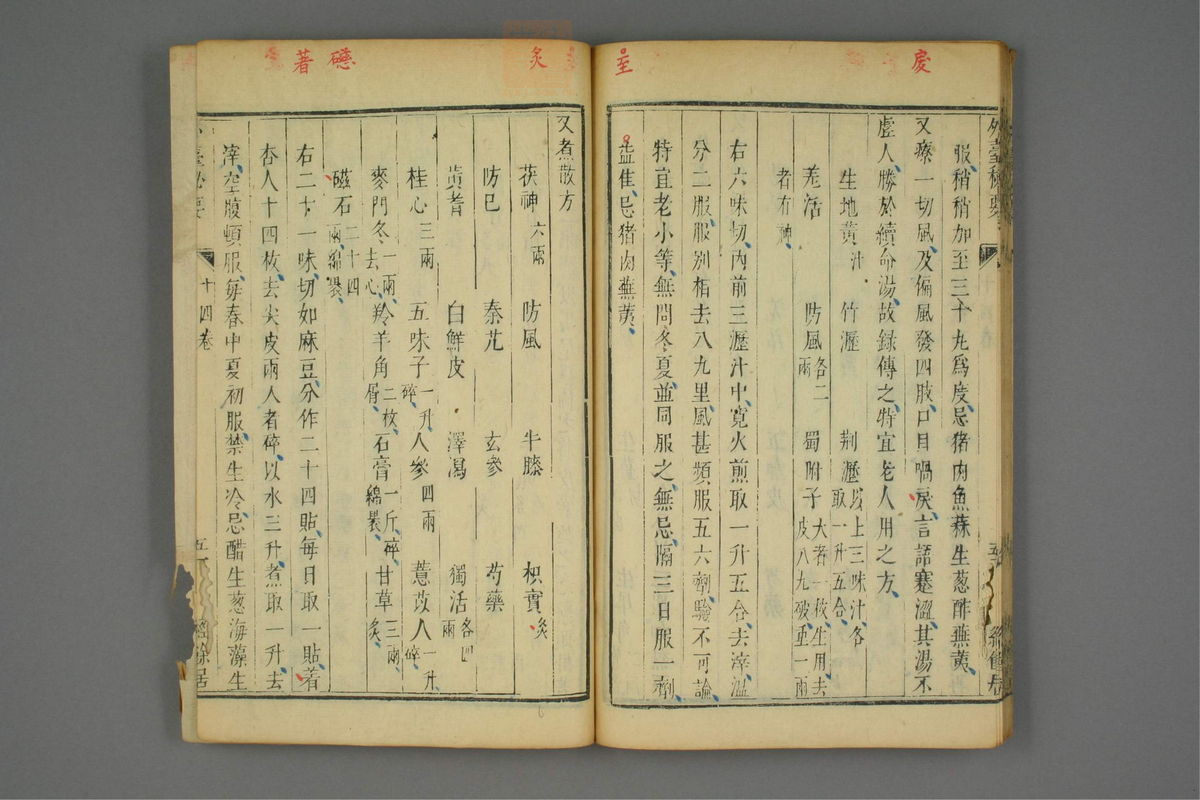 度
至
服稍稍加至三十丸爲度忌猪肉魚蒜生葱酢蕪荑
又療一切風及偏風發四肢口目喎戾言語蹇澀其湯不
虛人勝於續命湯故錄傳之特宜老人用之方
生地黃汁 竹瀝 荆瀝以上三味汁各取一升五合
羌活 防風各二兩 蜀附子大者一枚生用去皮八九破重一兩
者有神
右六味切內前三瀝汁中寬火煎取一升五合去滓溫
分二服服別相去八九里風甚頻服五六劑驗不可論
特宜老小等無問冬夏並同服之無忌隔三日服一劑
益佳忌猪肉蕪荑
外臺秘要
炙
礠
著
又煮散方
茯神六兩 防風 牛膝 枳實炙
防巳 秦艽 玄參 芍藥
黃耆 白鮮皮 澤瀉 獨活各四兩
桂心三兩 五味子一升碎 人參四兩 薏苡人一升碎
麥門冬一兩去心 羚羊角二枚屑 石膏一斤碎綿裹 甘草三兩炙
磁石二十四兩綿裹
右二十一味切如麻豆分作二十四貼每日取一貼著
杏人十四枚去尖皮兩人者碎以水三升煮取一升去
滓空腹頓服每春中夏初服禁生冷忌醋生葱海藻生
臺秘要 十四卷 五 經餘居